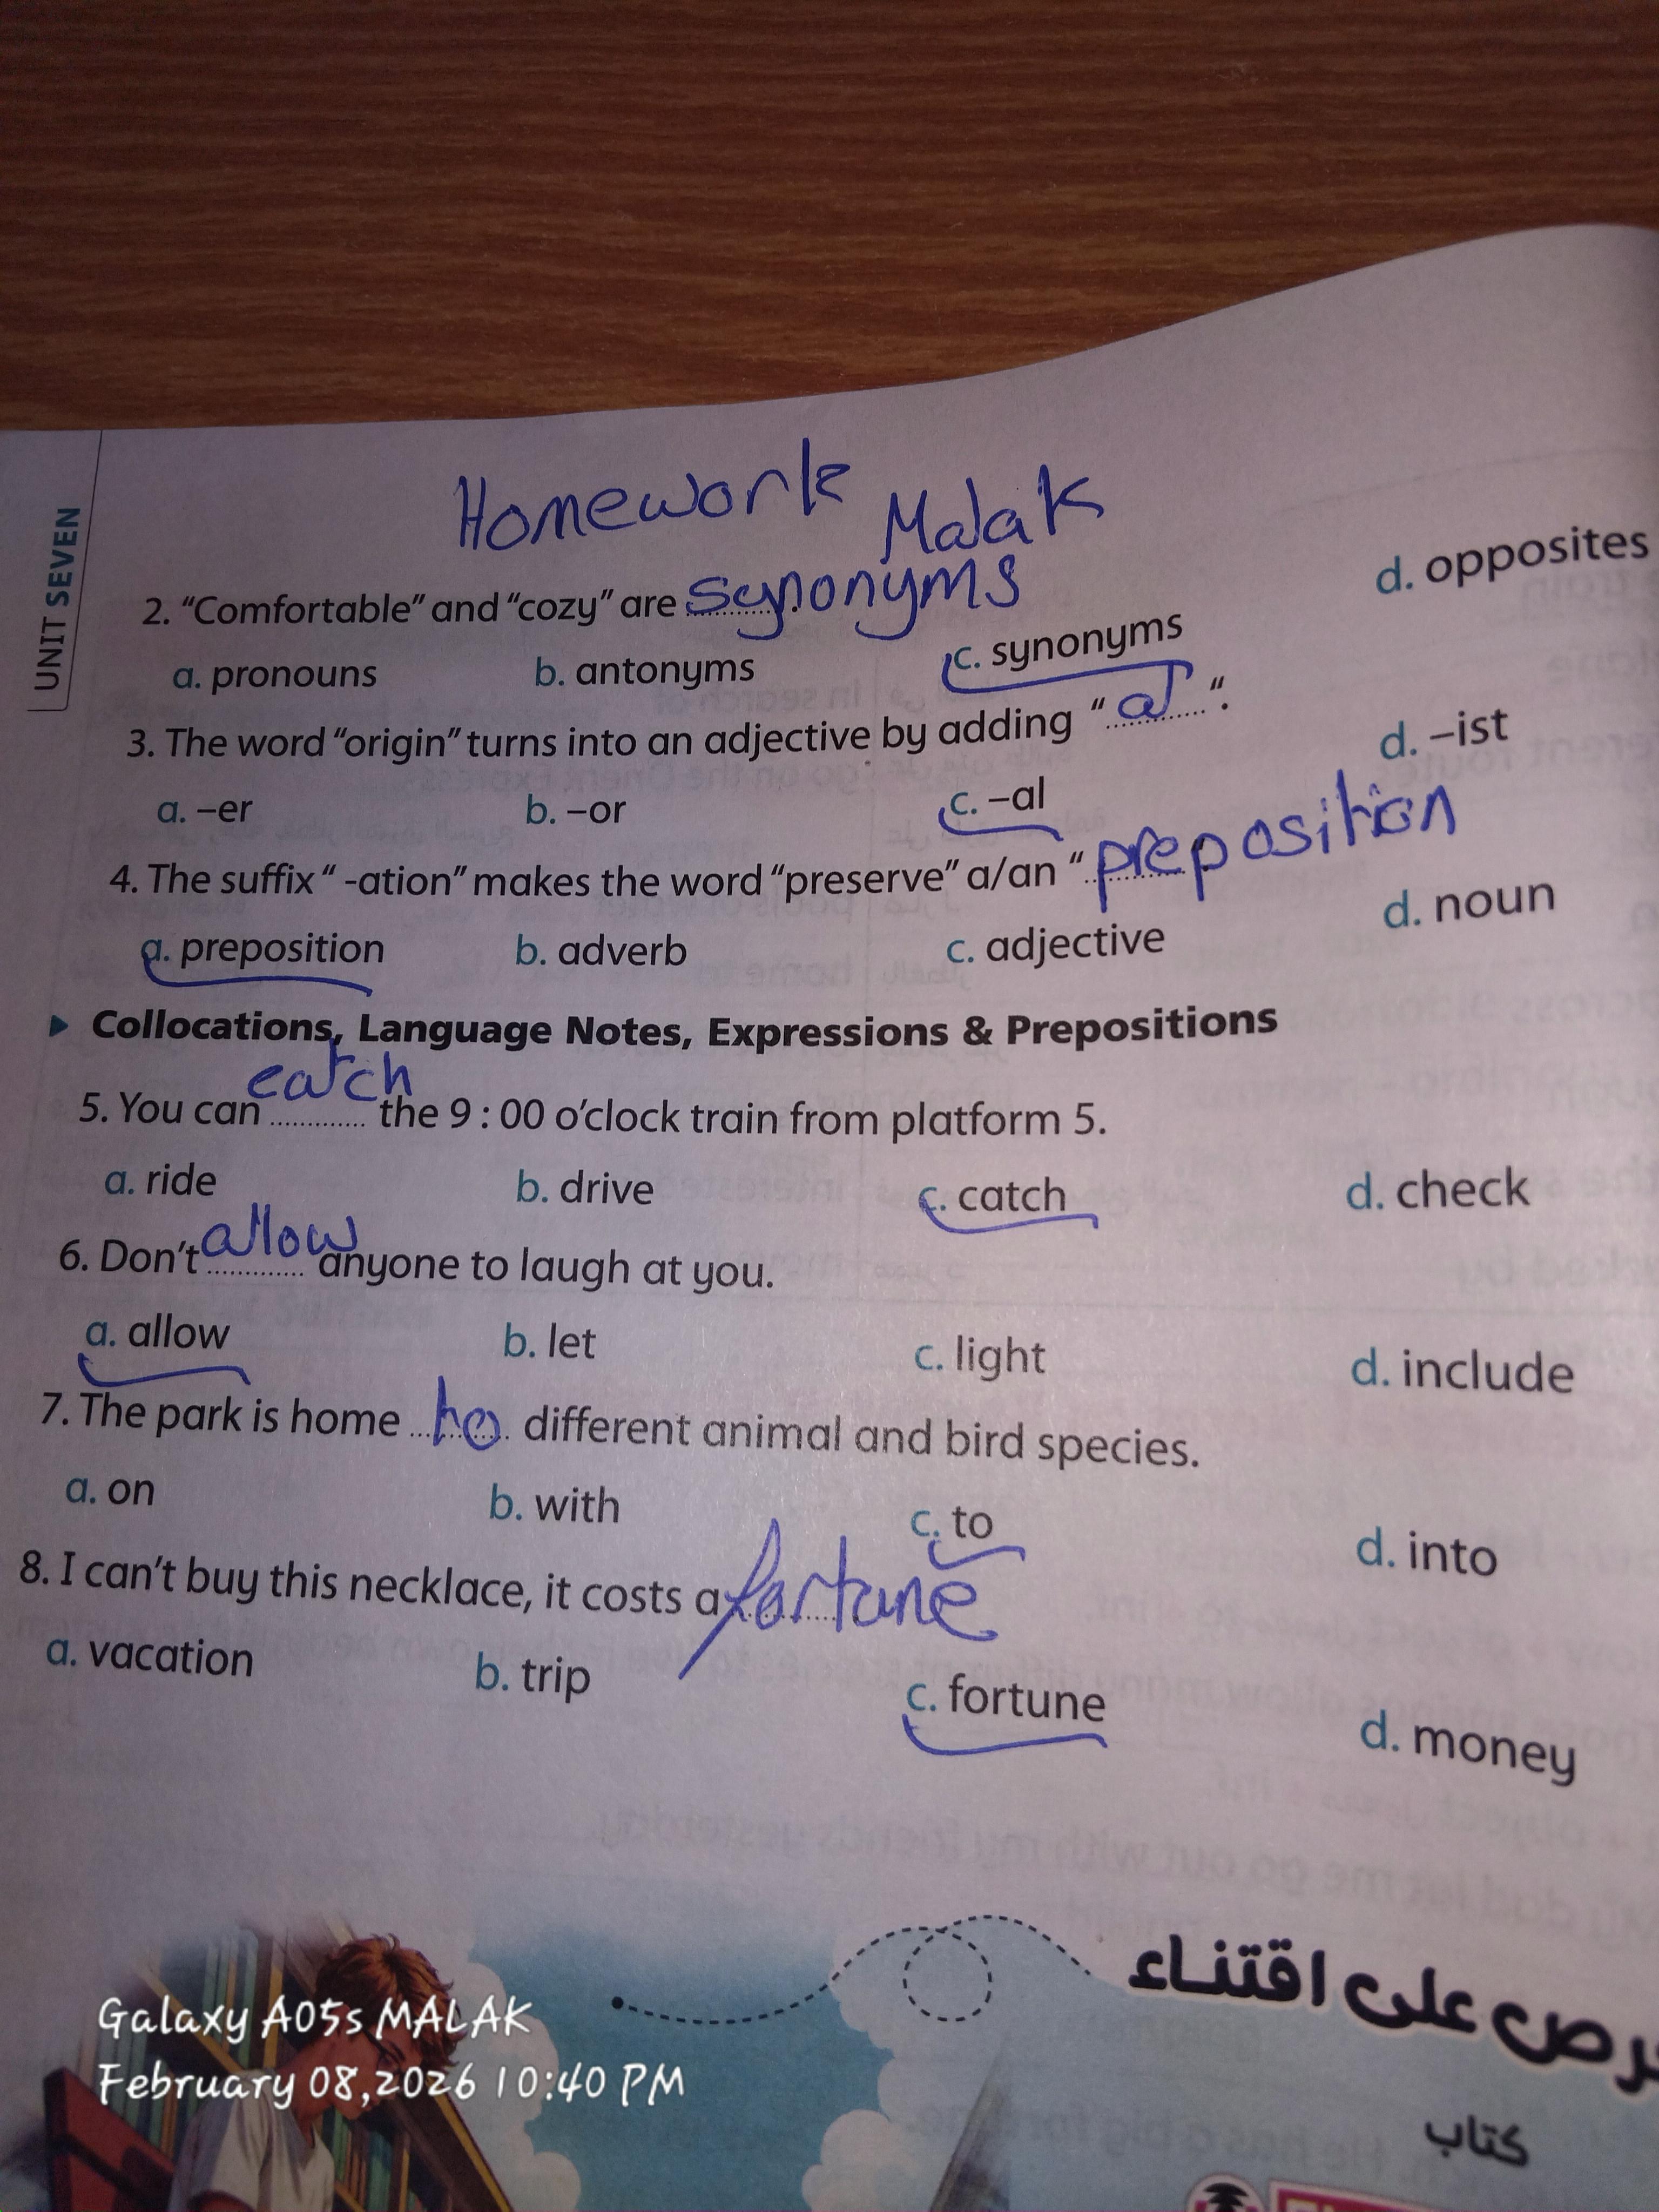 UNIT SEVEN
Homework Malak
2. "Comfortable" and "cozy" are synonyms.
a. pronouns b. antonyms c. synonyms d. opposites
3. The word "origin" turns into an adjective by adding "al".
a. –er b. –or c. –al d. –ist
4. The suffix " -ation" makes the word "preserve" a/an "preposition
a. preposition b. adverb c. adjective d. noun
Collocations, Language Notes, Expressions & Prepositions
5. You can catch the 9 : 00 o'clock train from platform 5.
a. ride b. drive c. catch d. check
6. Don't allow anyone to laugh at you.
a. allow b. let c. light d. include
7. The park is home to different animal and bird species.
a. on b. with c. to d. into
8. I can't buy this necklace, it costs a fortune
a. vacation b. trip c. fortune d. money
على اقتناء
كتاب
Galaxy A05s MALAK
February 08,2026 10:40 PM